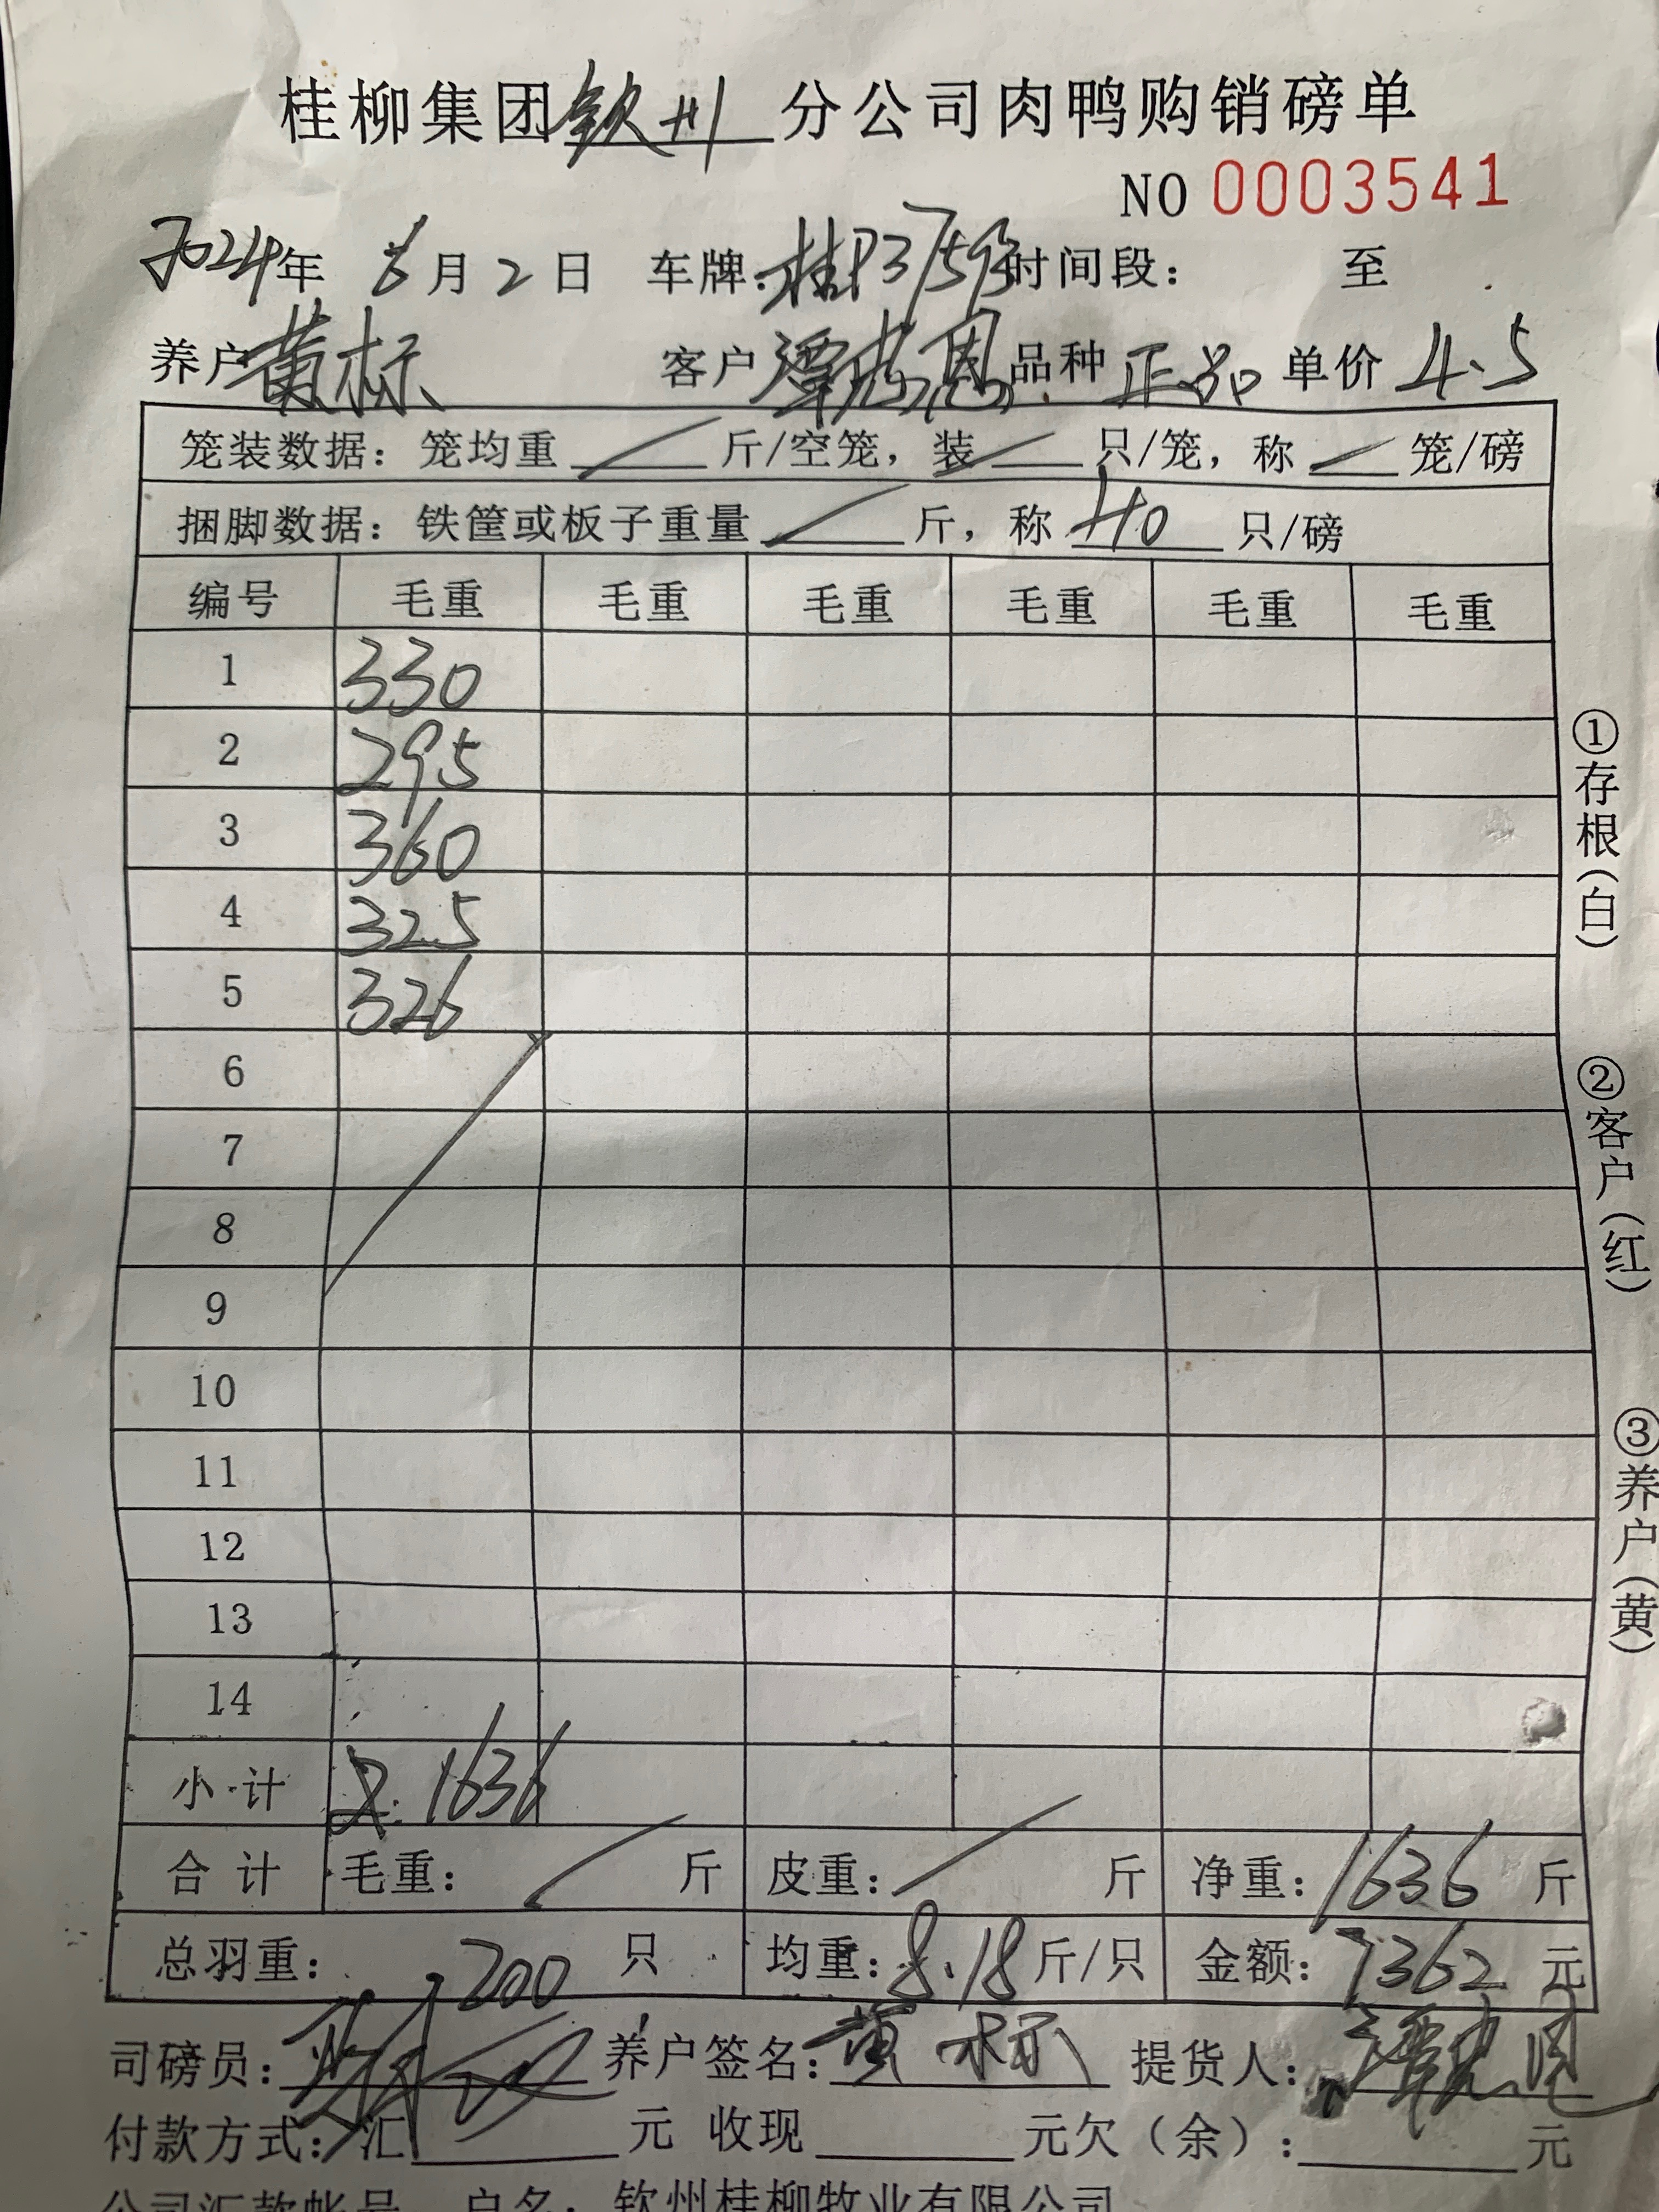 桂柳集团钦州分公司肉鸭购销磅单
NO 0003541
2024年 6月2日 车牌: 时间段: 至
养户 黄标 客户 品种 正品 单价 4.5
笼装数据: 笼均重 斤/空笼, 装 只/笼, 称 笼/磅
捆脚数据: 铁筐或板子重量 斤, 称 40 只/磅
编号 毛重 毛重 毛重 毛重 毛重 毛重
1 330
2 295
3 360
4 325
5 326
6
7
8
9
10
11
12
13
14
小计 1636
合计 毛重: 斤 皮重: 斤 净重: 1636 斤
总羽重: 200 只 均重: 8.18 斤/只 金额: 7362 元
司磅员: 养户签名: 黄标 提货人:
付款方式: 汇 元 收现 元欠(余): 元
公司汇款帐号 户名: 钦州桂柳牧业有限公司
①存根(白)
②客户(红)
③养户(黄)